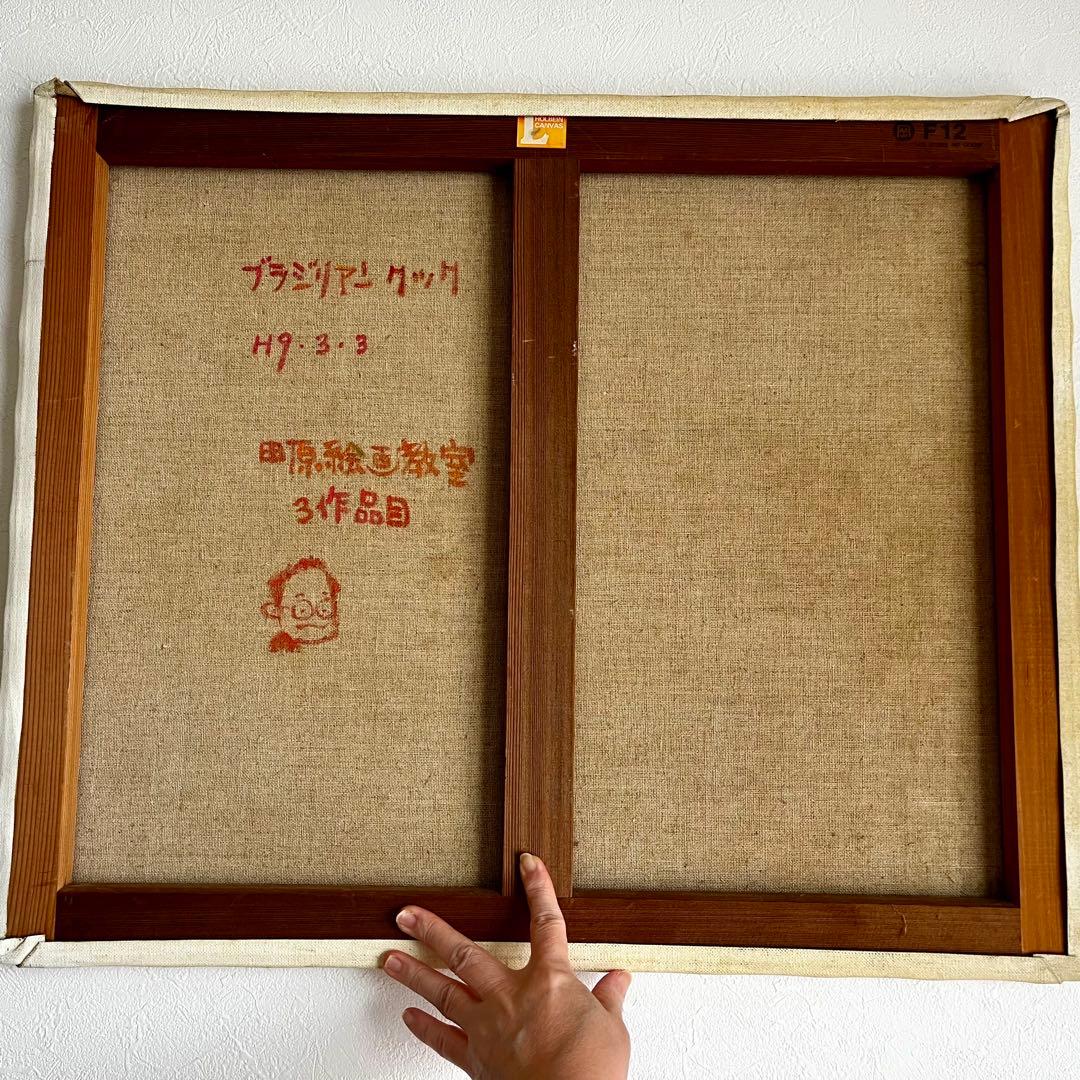 HOLBEIN
CANVAS
F12
ブラジリアン クック
H9・3・3
田原絵画教室
3作品目